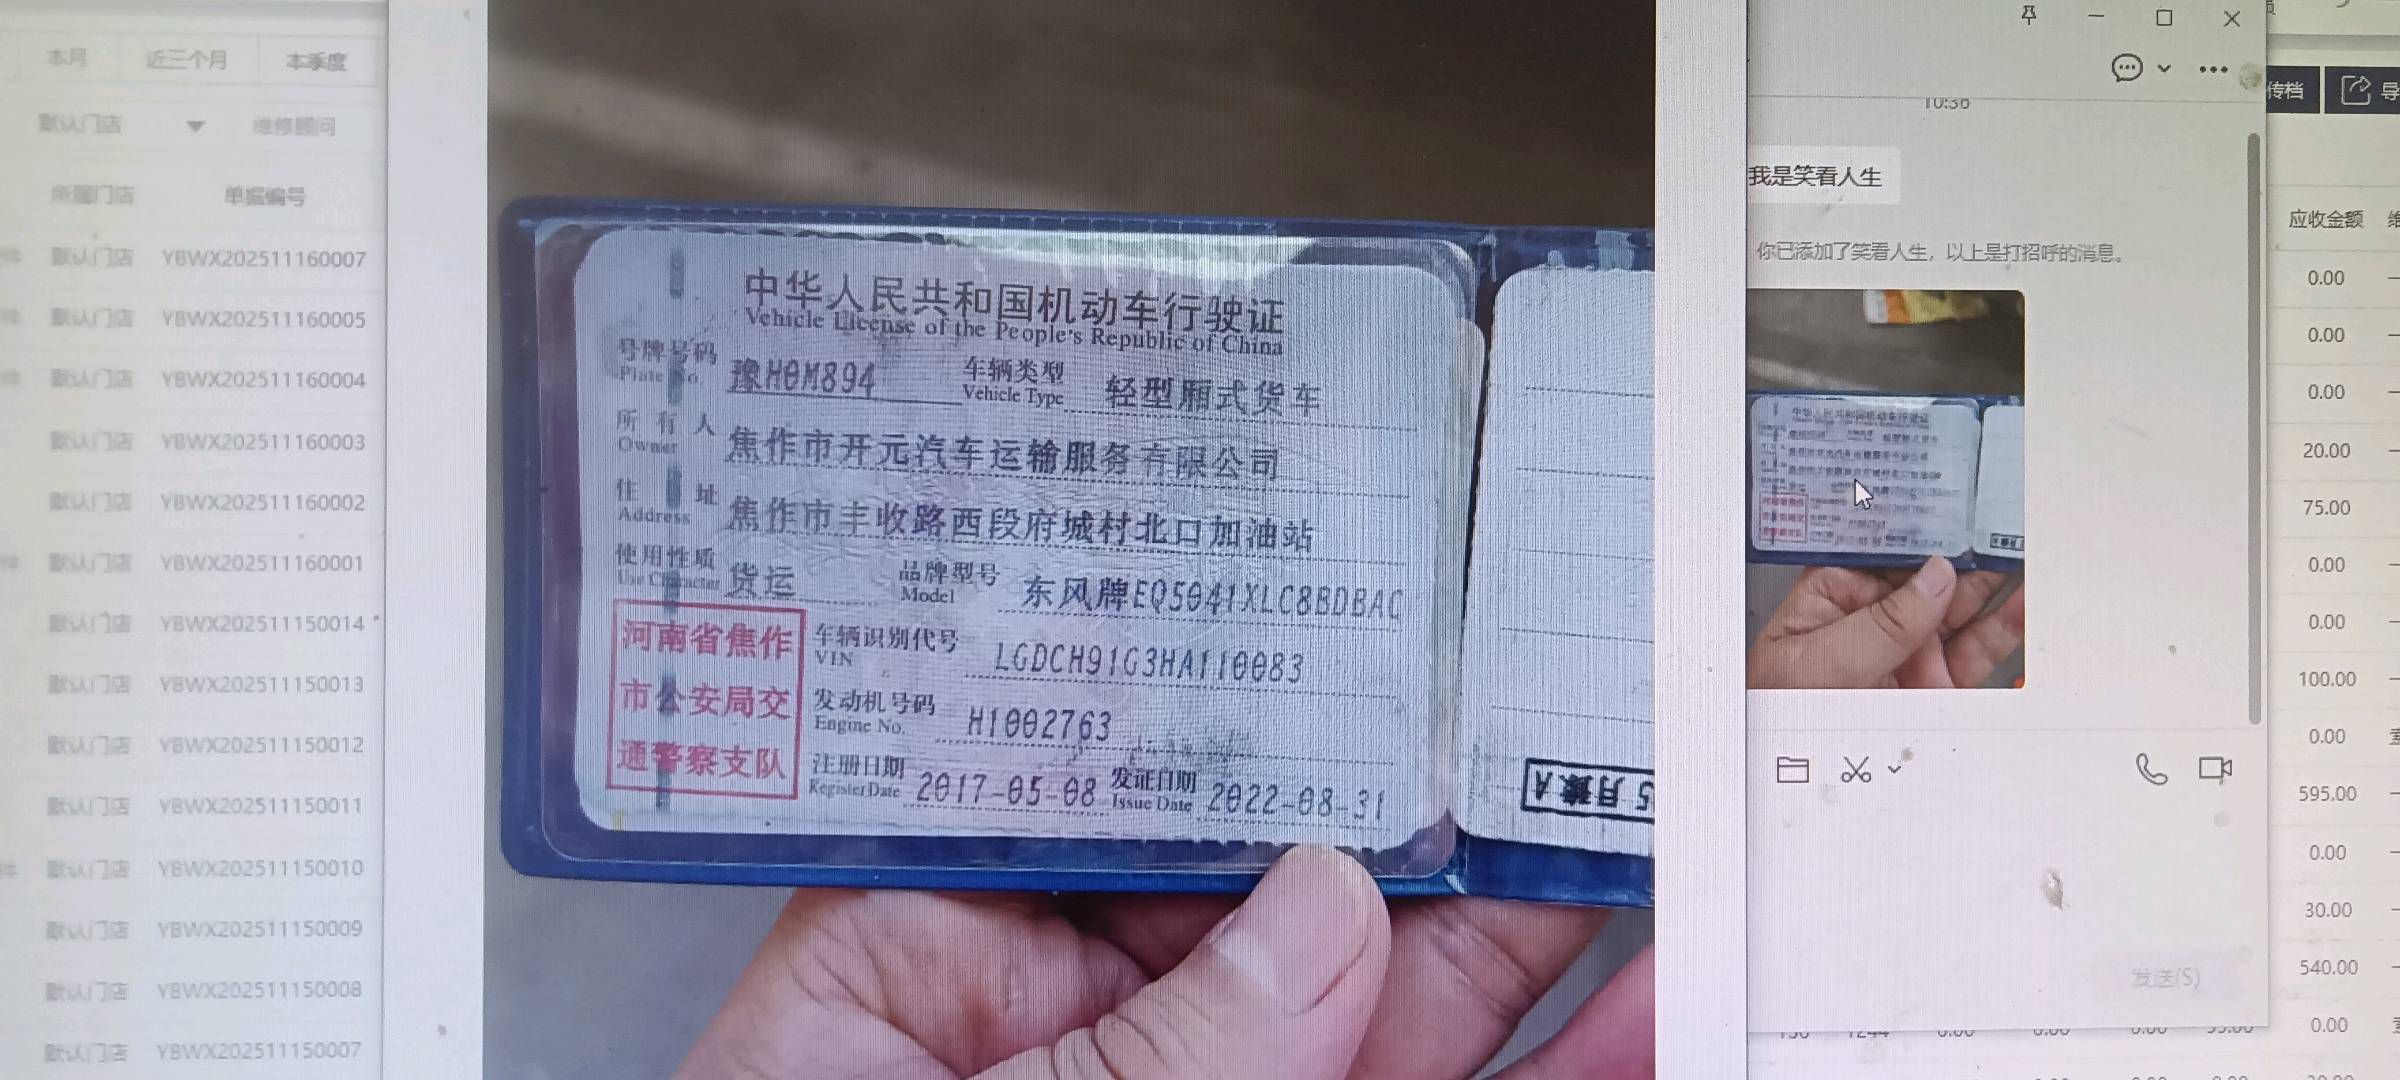 本月 近三个月 本季度
默认门店 维修顾问
所属门店 单据编号
默认门店 YBWX202511160007
默认门店 YBWX202511160005
默认门店 YBWX202511160004
默认门店 YBWX202511160003
默认门店 YBWX202511160002
默认门店 YBWX202511160001
默认门店 YBWX202511150014
默认门店 YBWX202511150013
默认门店 YBWX202511150012
默认门店 YBWX202511150011
默认门店 YBWX202511150010
默认门店 YBWX202511150009
默认门店 YBWX202511150008
默认门店 YBWX202511150007
中华人民共和国机动车行驶证
Vehicle License of the People's Republic of China
号牌号码 豫H0M894 车辆类型 轻型厢式货车
Plate No. Vehicle Type
所有人 焦作市开元汽车运输服务有限公司
Owner
住址 焦作市丰收路西段府城村北口加油站
Address
使用性质 货运 品牌型号 东风牌EQ5041XLC8BDBAC
Use Character Model
河南省焦作
市公安局交
通警察支队
车辆识别代号 LGDCH91G3HA110083
VIN
发动机号码 H1002763
Engine No.
注册日期 2017-05-08 发证日期 2022-08-31
Register Date Issue Date
10:36
我是笑看人生
你已添加了笑看人生，以上是打招呼的消息。
发送(S)
传档 导
应收金额
0.00
0.00
0.00
20.00
75.00
0.00
0.00
100.00
0.00
595.00
0.00
30.00
540.00
0.00